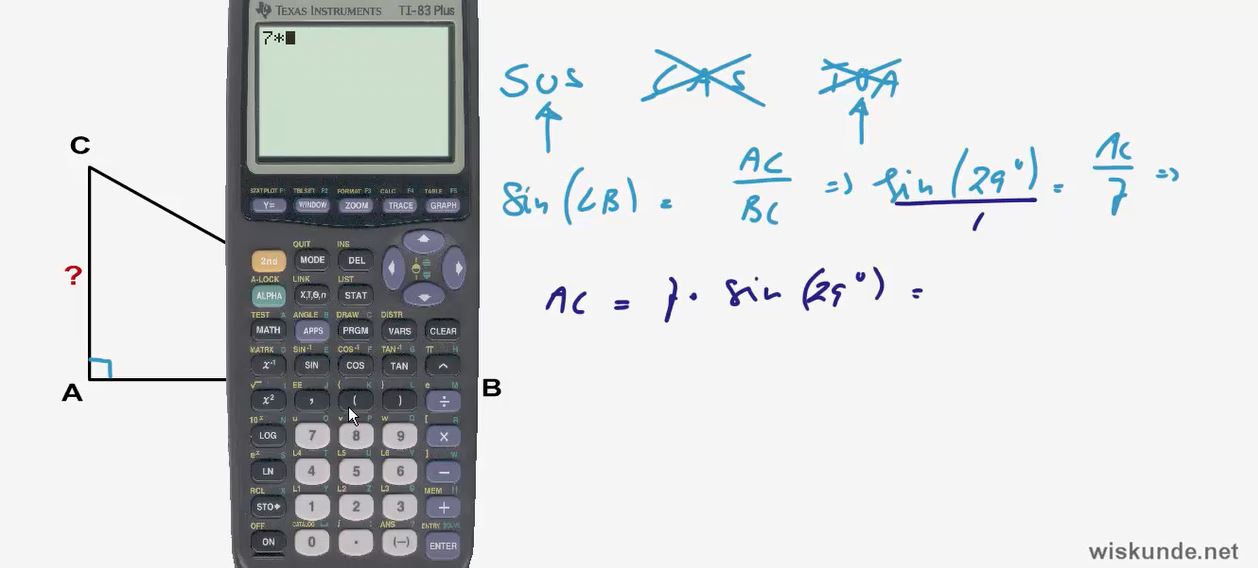 TEXAS INSTRUMENTS TI-83 Plus
7*
SOS CAS TOA
C
sin (∠B) = AC/BC => sin (29°)/1 = AC/7 =>
?
AC = 7 · sin (29°) =
A
B
STAT PLOT F1 TBLSET F2 FORMAT F3 CALC F4 TABLE F5
Y= WINDOW ZOOM TRACE GRAPH
QUIT INS
2nd MODE DEL
A-LOCK LINK LIST
ALPHA X,T,Θ,n STAT
TEST A ANGLE B DRAW C DISTR
MATH APPS PRGM VARS CLEAR
MATRX D SIN⁻¹ E COS⁻¹ F TAN⁻¹ G π H
x⁻¹ SIN COS TAN ^
√ I EE J { K } L e M
x² , ( ) ÷
10ˣ N u O v P w Q [ R
LOG 7 8 9 ×
eˣ S L4 T L5 U L6 V ] W
LN 4 5 6 −
RCL X L1 Y L2 Z L3 θ MEM "
STO▸ 1 2 3 +
OFF CATALOG i : ANS ? ENTRY SOLVE
ON 0 . (−) ENTER
wiskunde.net